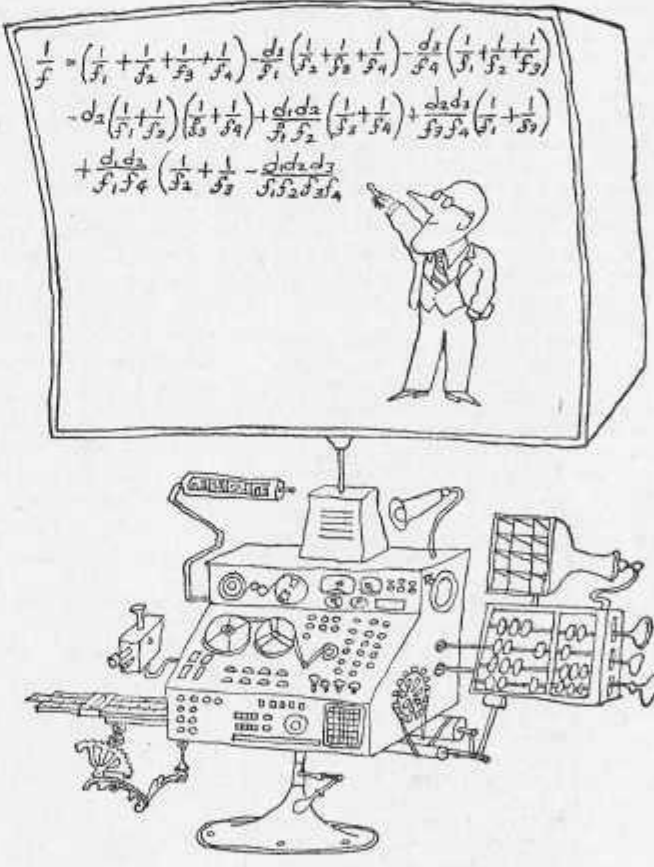 1/f = (1/f₁ + 1/f₂ + 1/f₃ + 1/f₄) - d₁/f₁ (1/f₂ + 1/f₃ + 1/f₄) - d₃/f₄ (1/f₁ + 1/f₂ + 1/f₃)
- d₂(1/f₁ + 1/f₂) (1/f₃ + 1/f₄) + d₁d₂/f₁f₂ (1/f₃ + 1/f₄) + d₂d₃/f₃f₄ (1/f₁ + 1/f₂)
+ d₁d₂/f₁f₄ (1/f₂ + 1/f₃ - d₁d₂d₃/f₁f₂f₃f₄